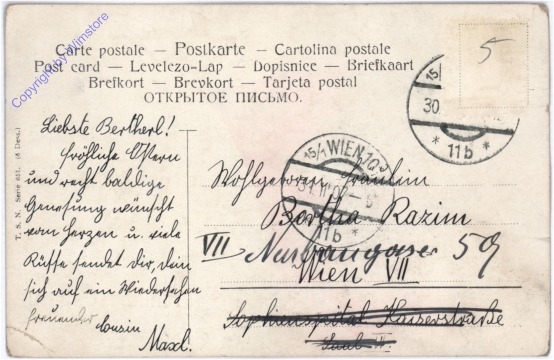 Carte postale — Postkarte — Cartolina postale
Post card — Levelezo-Lap — Dopisnice — Briefkaart
Brefkort — Brevkort — Tarjeta postal
ОТКРЫТОЕ ПИСЬМО.
Copyright by Wimstore
5
15/
30.
* 11b *
Liebste Bertherl!
Fröhliche Ostern
und recht baldige
Genesung wünscht
vom Herzen u. viele
Küsse sendet Dir, dein
sich auf ein Wiedersehen
freuender
Cousin
Maxl.
T. S. N. Serie 651. (6 Dess.)
15/1 WIEN 103
11b *
Wohlgeboren Fräulein
Bertha Razim
VII 59
Wien VII
Sophienspital Kaiserstraße
Saal